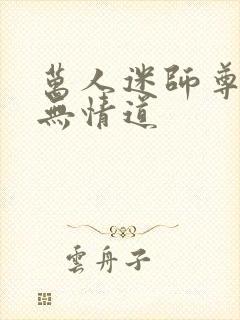 萬人迷師尊
無情道
雲舟子